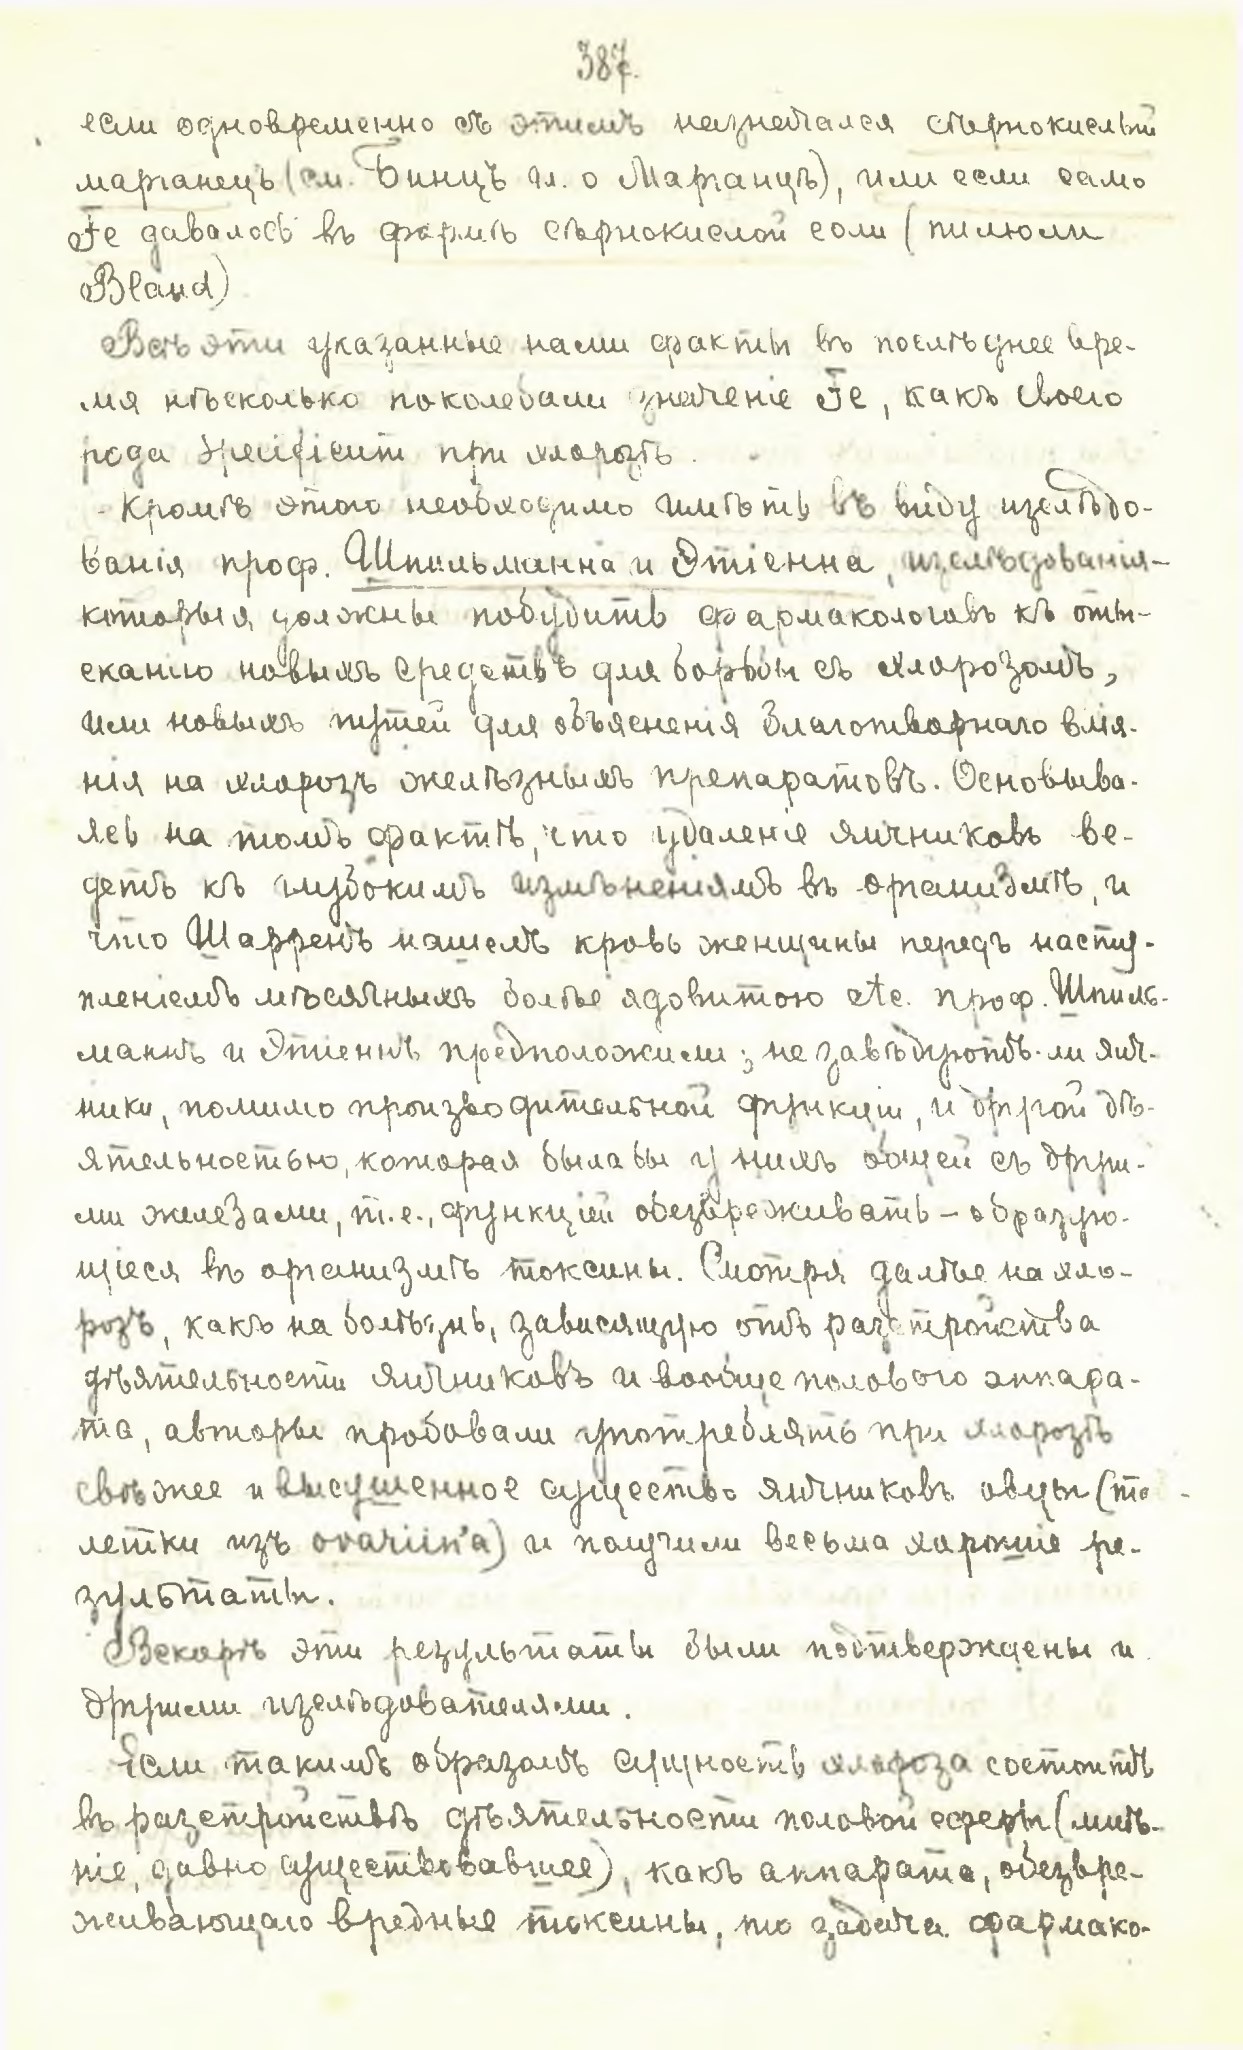 387.
если одновременно съ этимъ назначался сѣрнокислый
марганецъ (см. Бинцъ гл. о Марганцѣ), или если само
Fe давалось въ формѣ сѣрнокислой соли (пилюли
Bland)
Всѣ эти указанные нами факты въ послѣднее вре-
мя нѣсколько поколебали значеніе Fe, какъ своего
рода specificum при хлорозѣ.
Кромѣ этого необходимо имѣть въ виду изслѣдо-
ванія проф. Шпильманна и Этіенна, изслѣдованія-
которыя должны побудить фармакологовъ къ оты-
сканію новыхъ средствъ для борьбы съ хлорозомъ,
или новыхъ путей для объясненія благотворнаго влія-
нія на хлорозъ желѣзныхъ препаратовъ. Основыва-
ясь на томъ фактѣ, что удаленіе яичниковъ ве-
детъ къ глубокимъ измѣненіямъ въ организмѣ, и
что Шарренъ нашелъ кровь женщины передъ насту-
пленіемъ мѣсячныхъ болѣе ядовитою etc. проф. Шпиль-
маннъ и Этіеннъ предположили; не завѣдуютъ-ли яич-
ники, помимо производительной функціи, и другой дѣ-
ятельностью, которая была бы у нихъ общей съ други-
ми железами, т.е., функціей обезвреживать - образую-
щіеся въ организмѣ токсины. Смотря далѣе на хло-
розъ, какъ на болѣзнь, зависящую отъ разстройства
дѣятельности яичниковъ и вообще полового аппара-
та, авторы пробовали употреблять при хлорозѣ
свѣжее и высушенное существо яичниковъ овцы (таб-
летки изъ ovariin'a) и получили весьма хорошіе ре-
зультаты.
Вскорѣ эти результаты были подтверждены и
другими изслѣдователями.
Если такимъ образомъ сущность хлороза состоитъ
въ разстройствѣ дѣятельности половой сферы (мнѣ-
ніе, давно существовавшее), какъ аппарата, обезвре-
живающаго вредные токсины, то задача фармако-